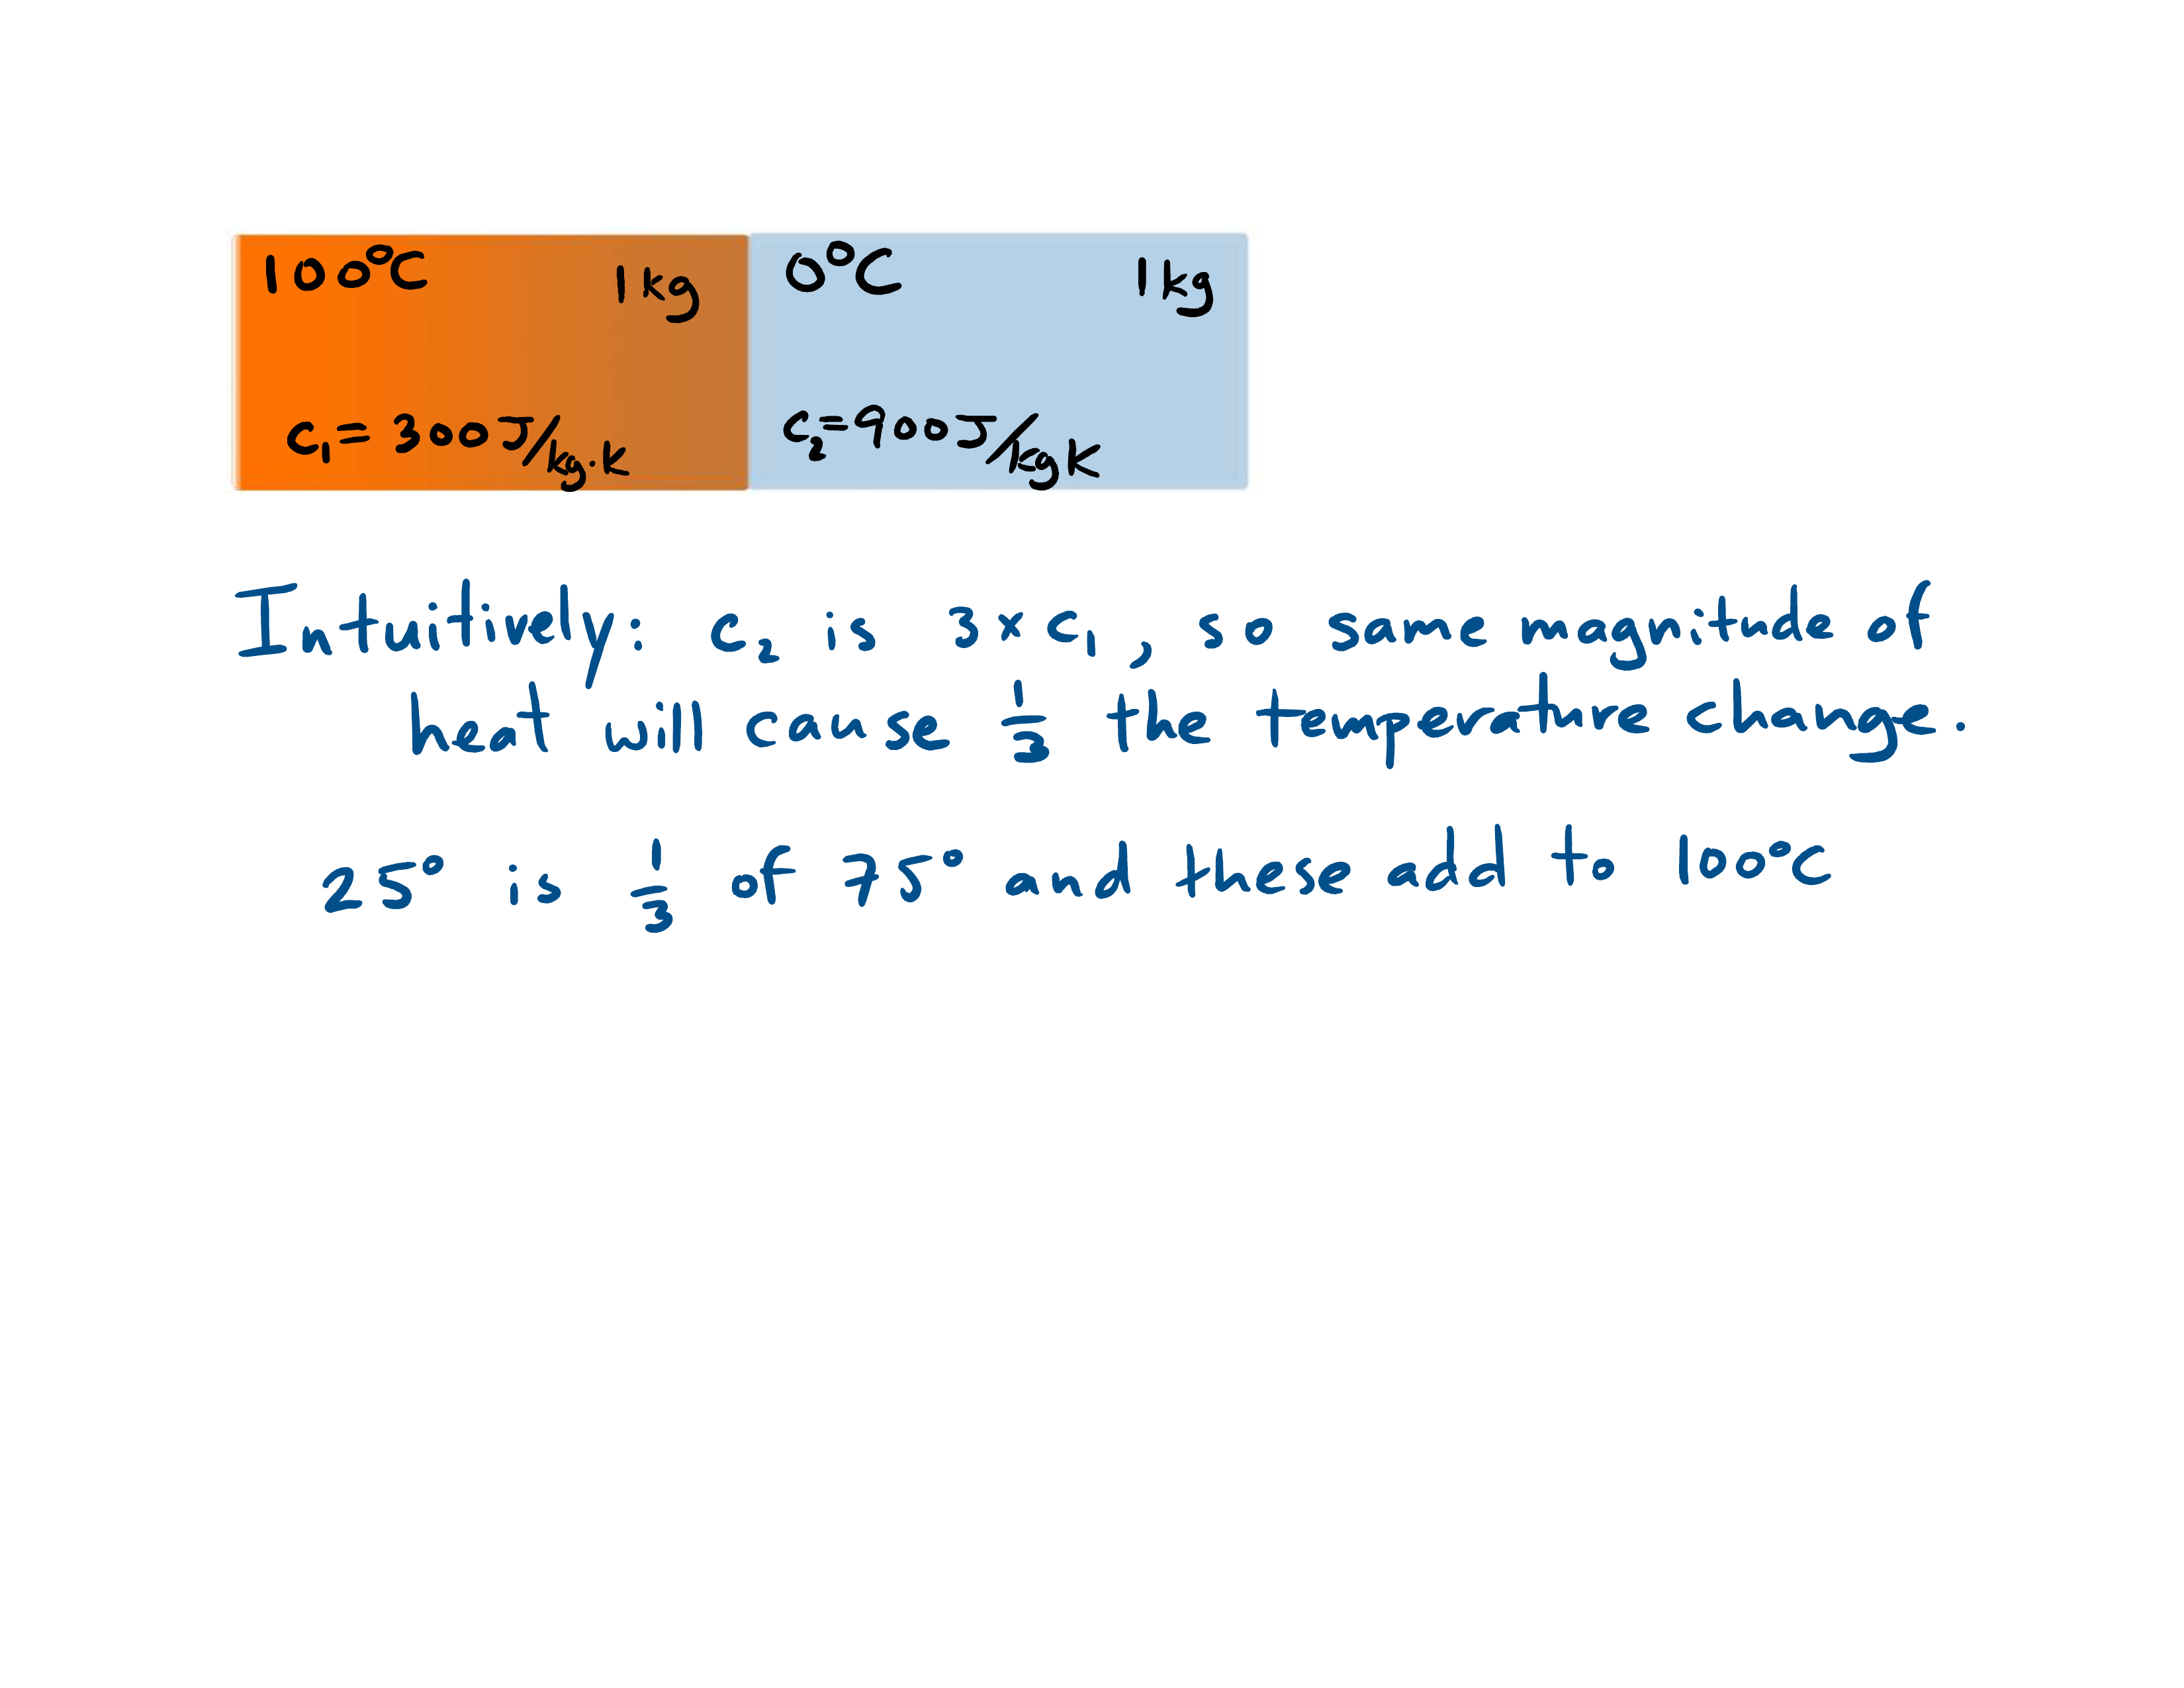 100°C 1kg 0°C 1kg
c₁ = 300 J/kg·K c₂ = 900 J/kgK
Intuitively: c₂ is 3x c₁, so same magnitude of
heat will cause 1/3 the temperature change.
25° is 1/3 of 75° and these add to 100°C